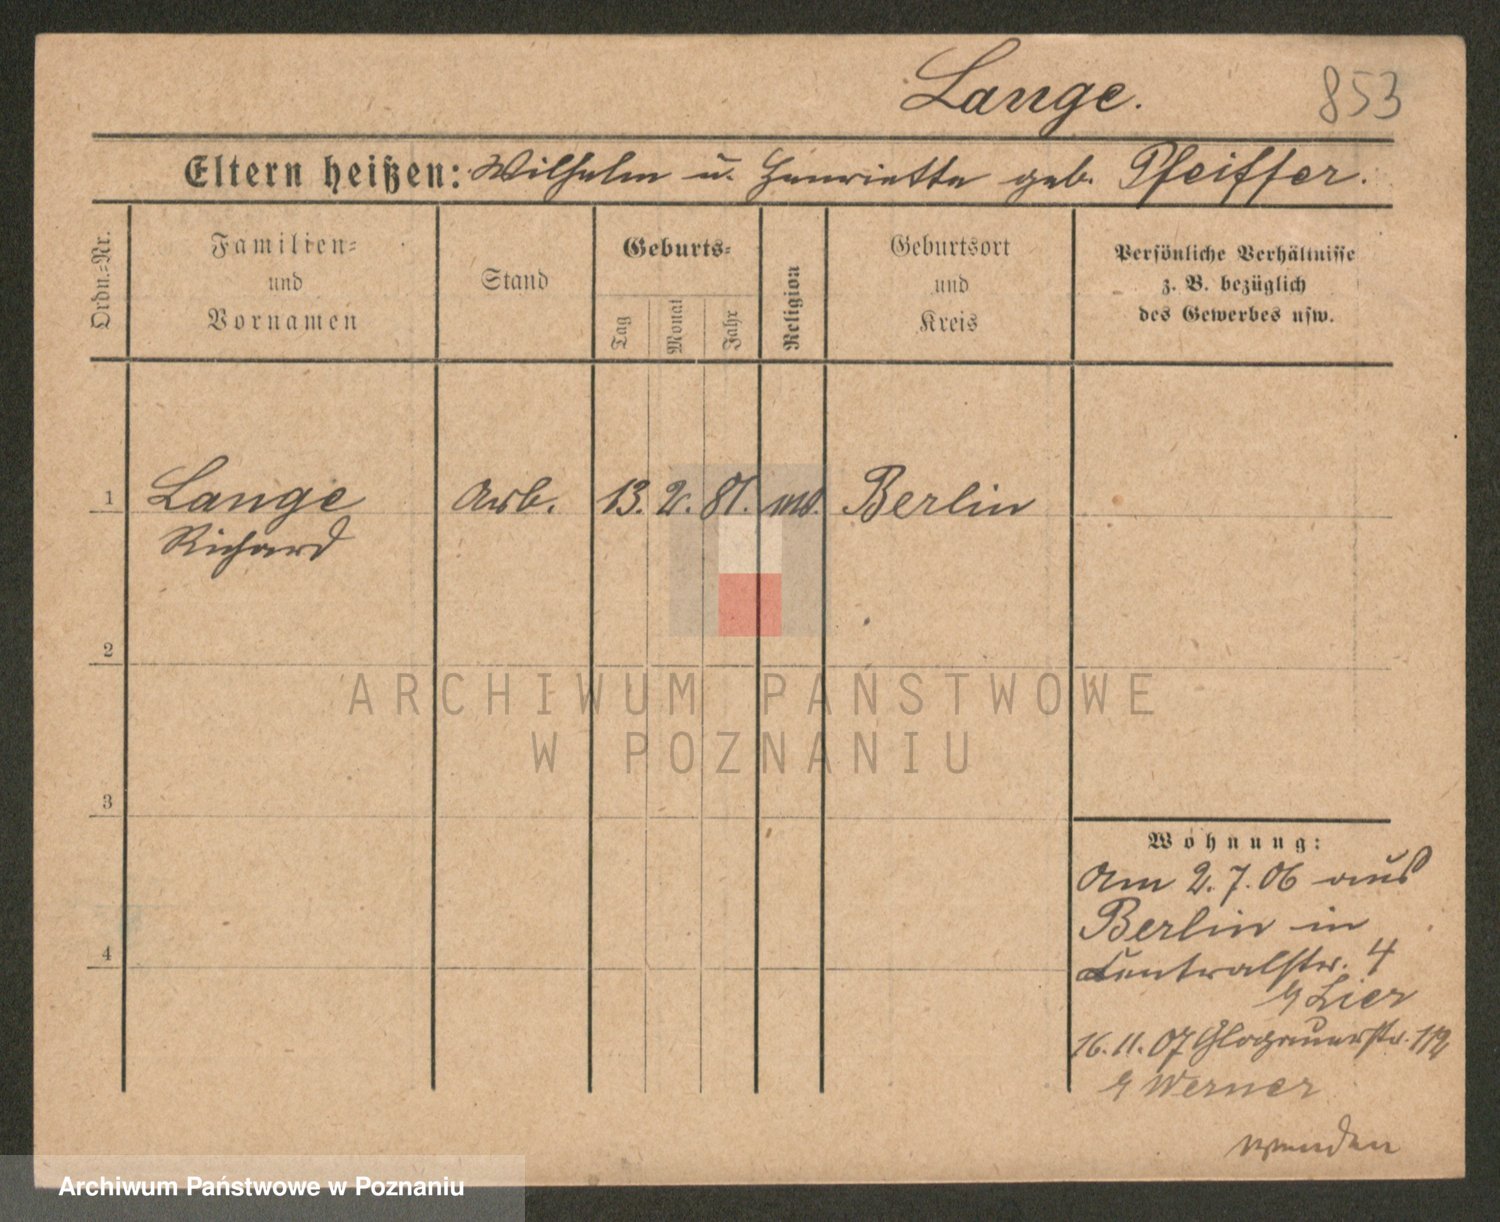 Lange. 853
Eltern heißen: Wilhelm u. Henriette geb. Pfeiffer.
Ordn.=Nr.
Familien=
und
Vornamen
Stand
Geburts=
Tag
Monat
Jahr
Religion
Geburtsort
und
Kreis
Persönliche Verhältnisse
z. B. bezüglich
des Gewerbes usw.
1 Lange Arb. 13. 2. 81. Berlin
Richard
2
3
4
Wohnung:
Am 2. 7. 06 aus
Berlin in
Centralstr. 4
Lier
16. 11. 07 Glogauerstr. 112
Werner
wenden
ARCHIWUM PAŃSTWOWE
W POZNANIU
Archiwum Państwowe w Poznaniu